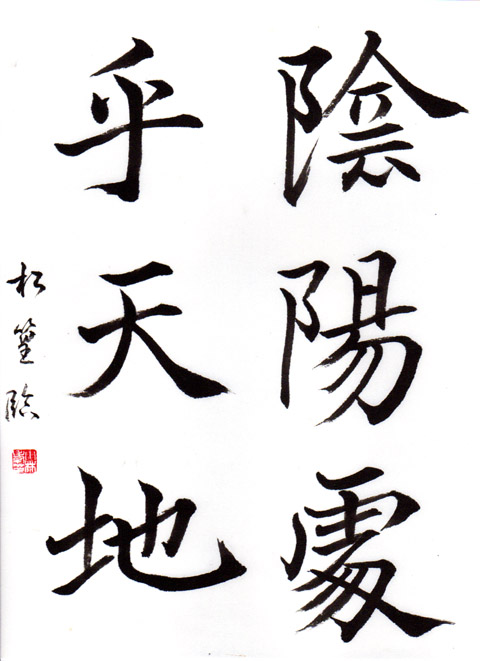 陰陽處
乎天地
松篁臨